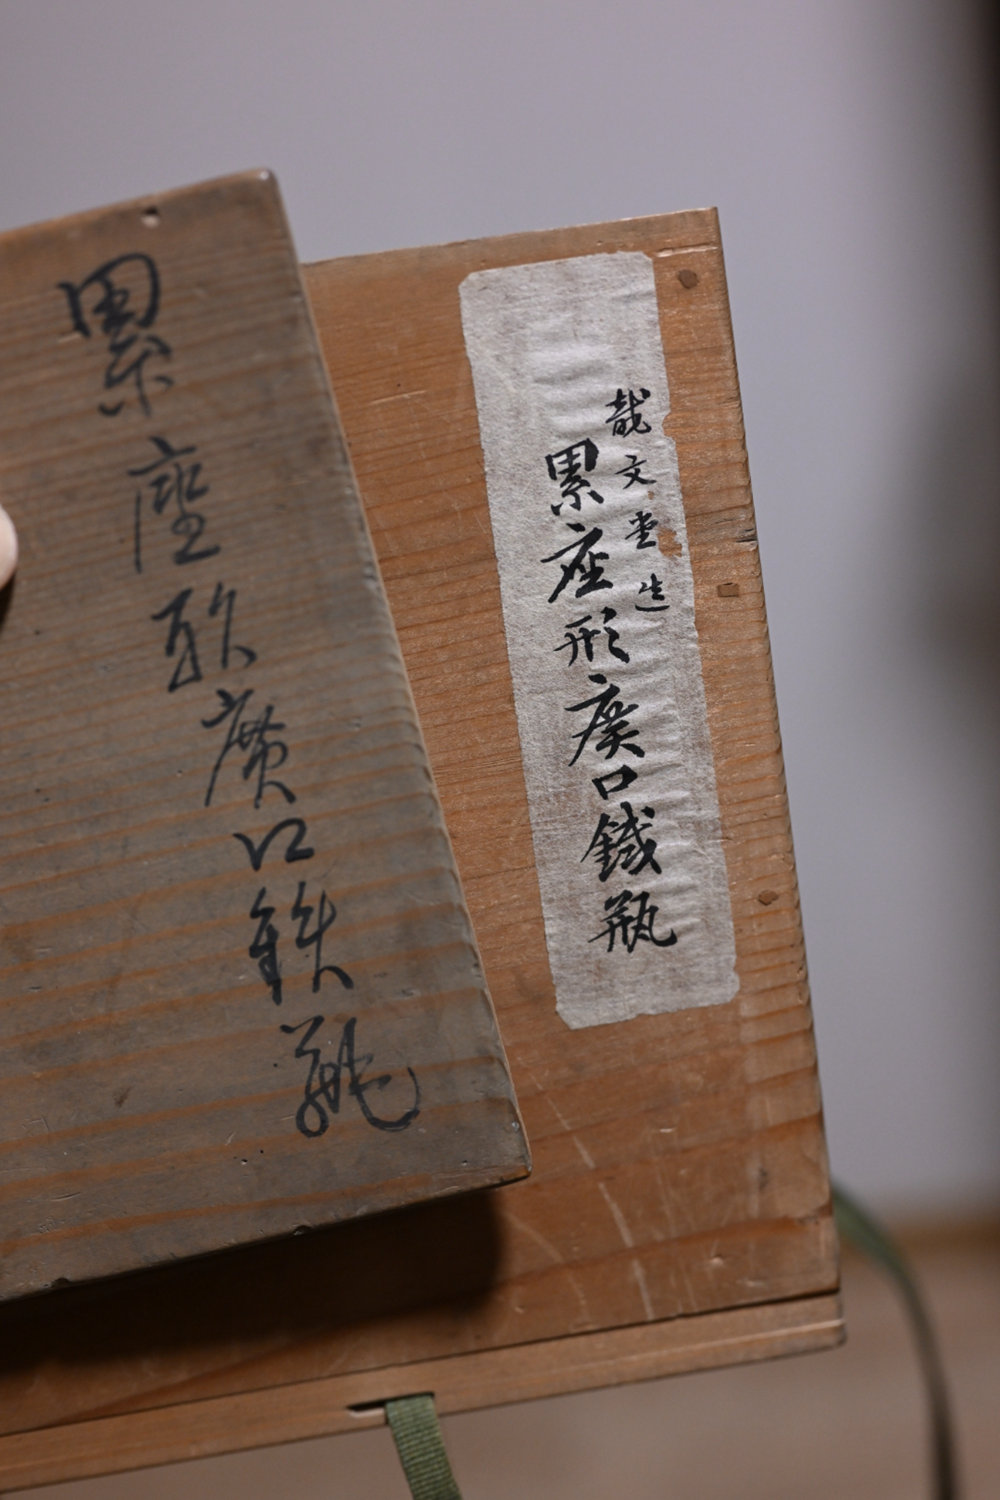 哉文堂造
累座形廣口鐵瓶
累座形廣口鉄瓶